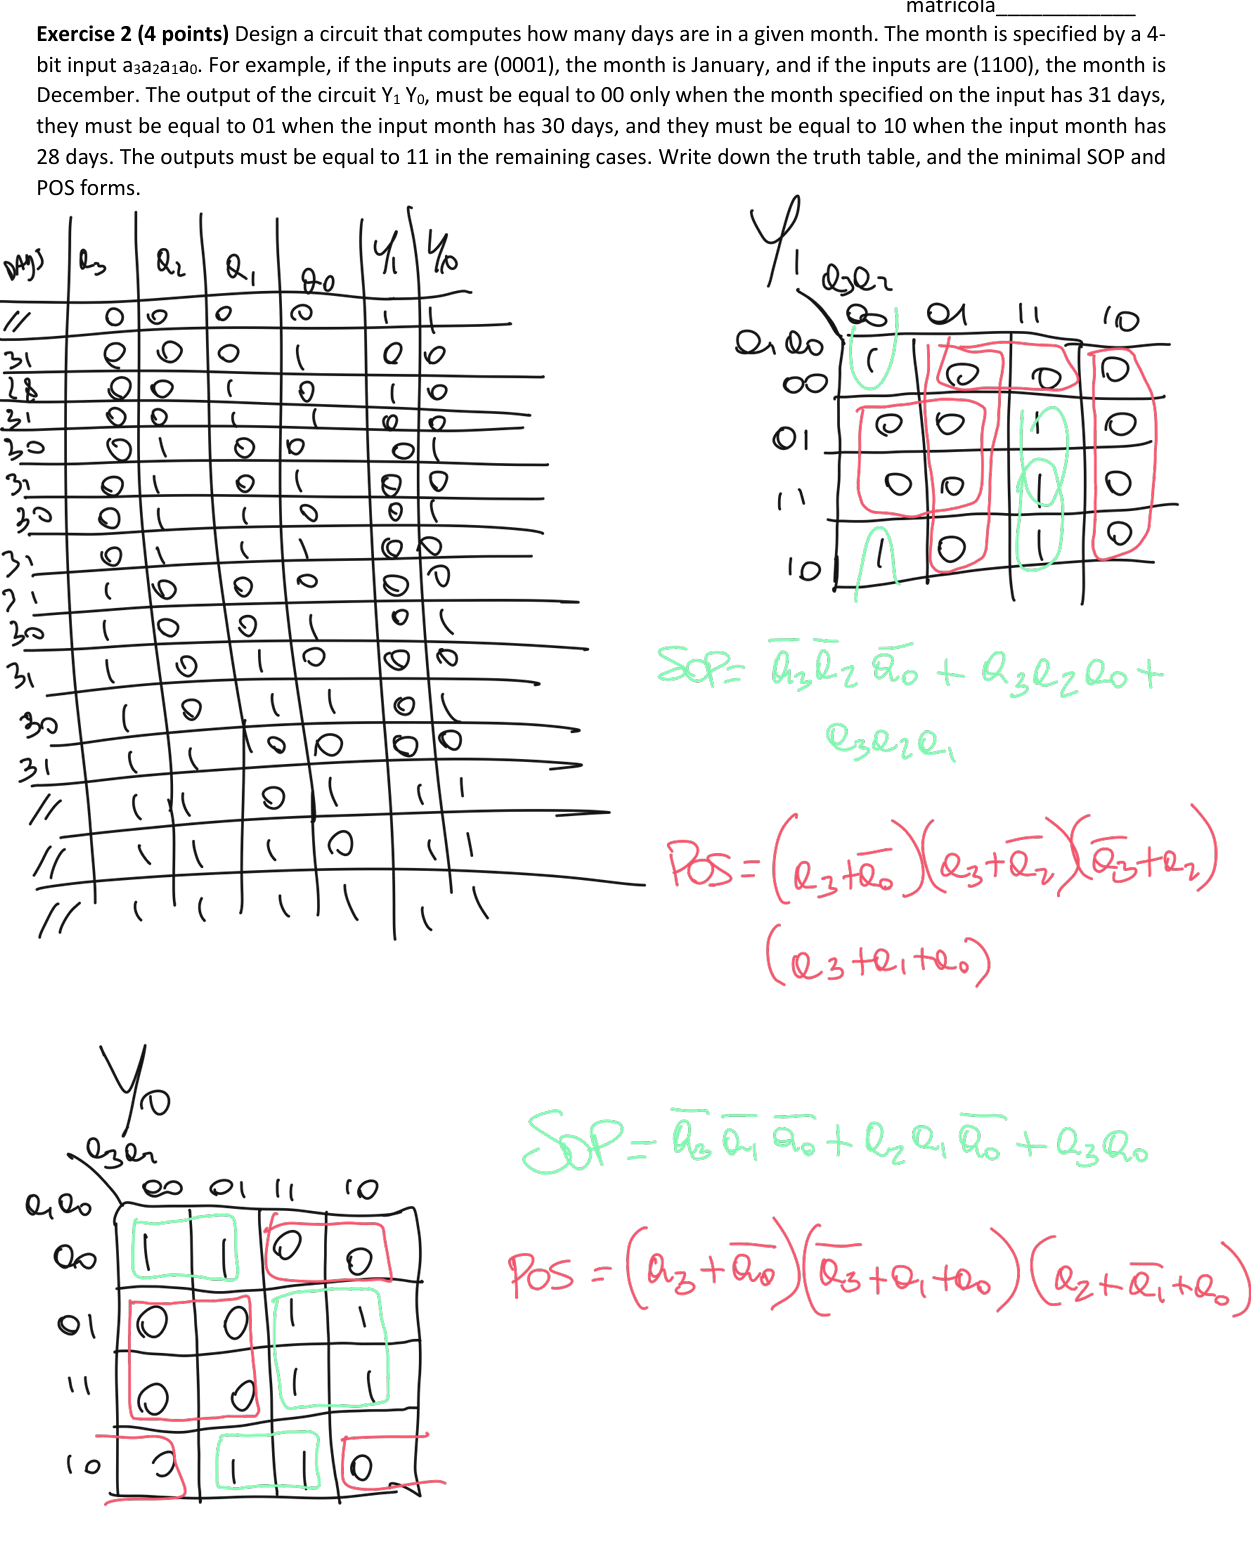 matricola____________
Exercise 2 (4 points) Design a circuit that computes how many days are in a given month. The month is specified by a 4-
bit input a₃a₂a₁a₀. For example, if the inputs are (0001), the month is January, and if the inputs are (1100), the month is
December. The output of the circuit Y₁ Y₀, must be equal to 00 only when the month specified on the input has 31 days,
they must be equal to 01 when the input month has 30 days, and they must be equal to 10 when the input month has
28 days. The outputs must be equal to 11 in the remaining cases. Write down the truth table, and the minimal SOP and
POS forms.
DAYS a₃ a₂ a₁ a₀ Y₁ Y₀
// 0 0 0 0 1 1
31 0 0 0 1 0 0
28 0 0 1 0 1 0
31 0 0 1 1 0 0
30 0 1 0 0 0 1
31 0 1 0 1 0 0
30 0 1 1 0 0 1
31 0 1 1 1 0 0
31 1 0 0 0 0 0
30 1 0 0 1 0 1
31 1 0 1 0 0 0
30 1 0 1 1 0 1
31 1 1 0 0 0 0
// 1 1 0 1 1 1
// 1 1 1 0 1 1
// 1 1 1 1 1 1
Y₁
a₃a₂
00 01 11 10
a₁a₀
00 1 0 0 0
01 0 0 1 0
11 0 0 1 0
10 1 0 1 0
SOP= a̅₃a̅₂ a̅₀ + a₃a₂a₀ +
a₃a₂a₁
POS = (a₃+a̅₀)(a₃+a̅₂)(a̅₃+a₂)
(a₃+a₁+a₀)
Y₀
a₃a₂
00 01 11 10
a₁a₀
00 1 1 0 0
01 0 0 1 1
11 0 0 1 1
10 0 1 1 0
SOP = a̅₃ a̅₁ a̅₀ + a₂ a₁ a̅₀ + a₃a₀
POS = (a₃ + a̅₀)(a̅₃+a₁+a₀)(a₂+a̅₁+a₀)